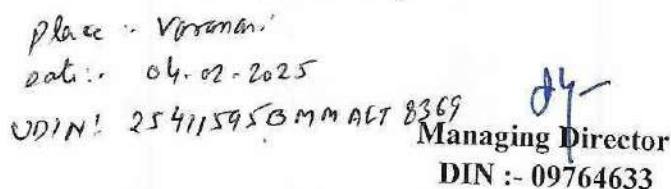 Place :- Varanasi
Date:- 04-02-2025
UDIN: 25411595BMMAET8369
Managing Director
DIN :- 09764633